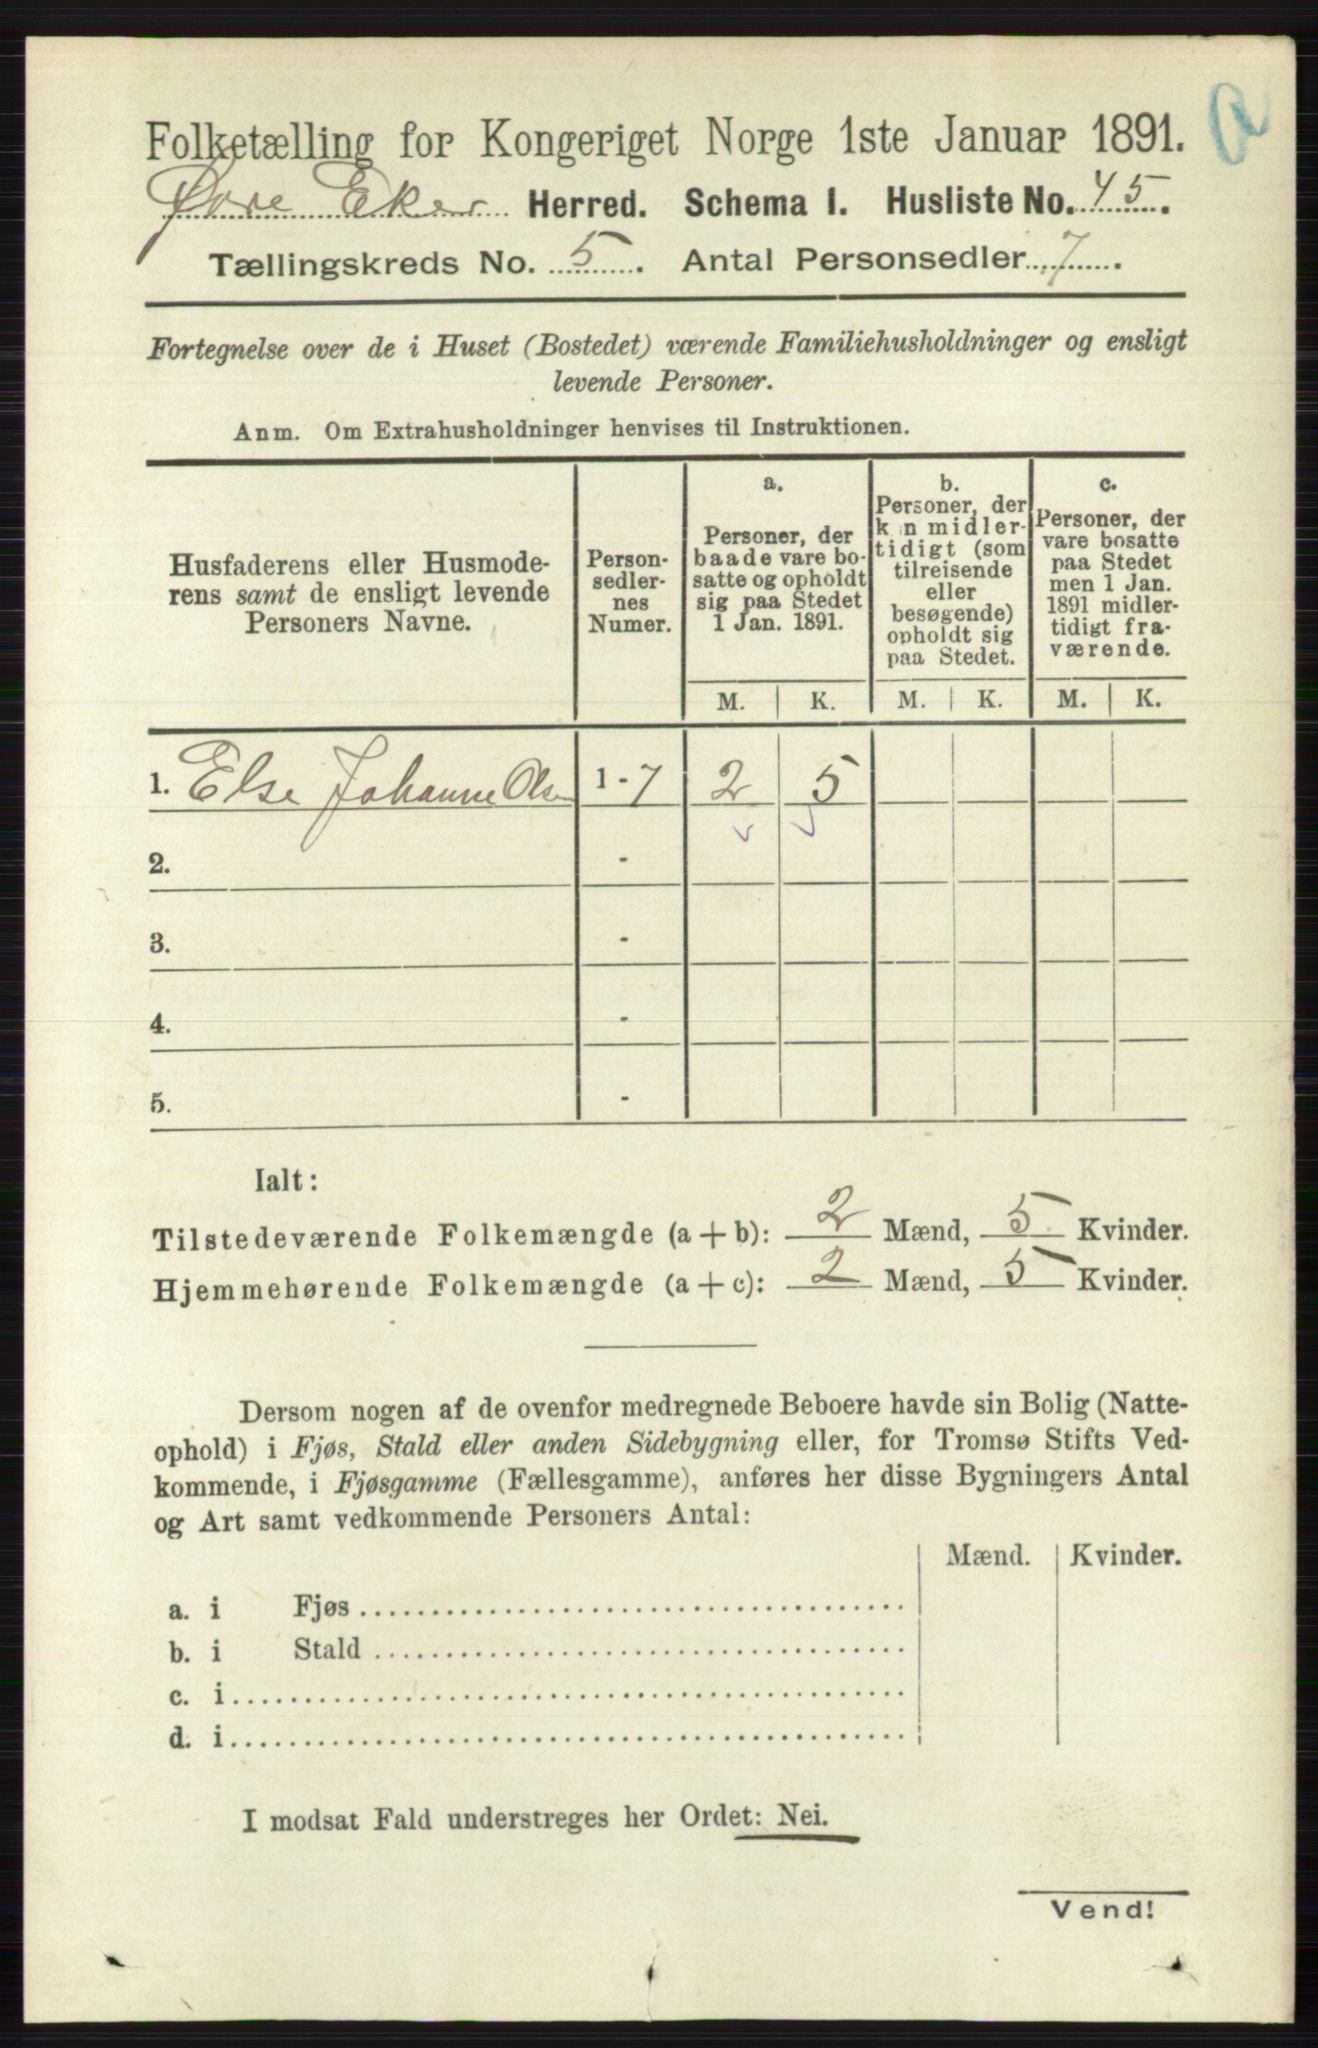 a
Folketælling for Kongeriget Norge 1ste Januar 1891.
Øvre Eker Herred. Schema I. Husliste No. 45.
Tællingskreds No. 5. Antal Personsedler 7.
Fortegnelse over de i Huset (Bostedet) værende Familiehusholdninger og ensligt
levende Personer.
Anm. Om Extrahusholdninger henvises til Instruktionen.
Husfaderens eller Husmode-
rens samt de ensligt levende
Personers Navne.
Person-
sedler-
nes
Numer.
a.
Personer, der
baade vare bo-
satte og opholdt
sig paa Stedet
1 Jan. 1891.
b.
Personer, der
kun midler-
tidigt (som
tilreisende
eller
besøgende)
opholdt sig
paa Stedet.
c.
Personer, der
vare bosatte
paa Stedet
men 1 Jan.
1891 midler-
tidigt fra-
værende.
M. K. M. K. M. K.
1. Else Johanne Olsen 1-7 2 5
2. -
3. -
4. -
5. -
Ialt:
Tilstedeværende Folkemængde (a+b): 2 Mænd, 5 Kvinder.
Hjemmehørende Folkemængde (a+c): 2 Mænd, 5 Kvinder.
Dersom nogen af de ovenfor medregnede Beboere havde sin Bolig (Natte-
ophold) i Fjøs, Stald eller anden Sidebygning eller, for Tromsø Stifts Ved-
kommende, i Fjøsgamme (Fællesgamme), anføres her disse Bygningers Antal
og Art samt vedkommende Personers Antal:
Mænd. Kvinder.
a. i Fjøs
b. i Stald
c. i
d. i
I modsat Fald understreges her Ordet: Nei.
Vend!